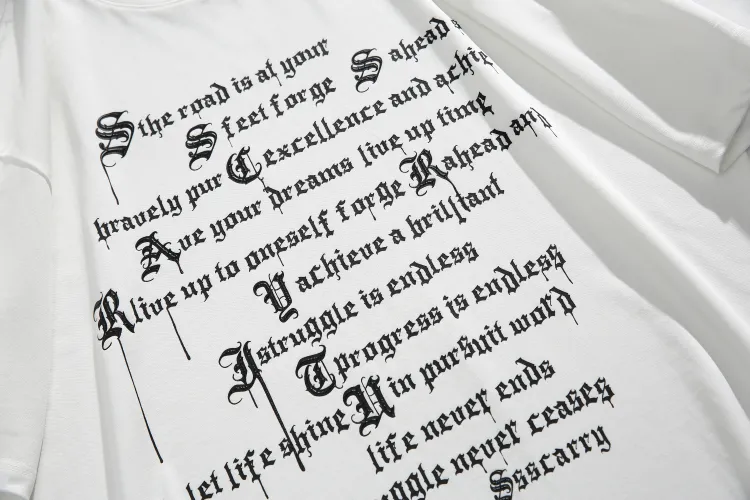 S the road is at your
S feet forge S ahead
C excellence and achie
bravely pur
A ve your dreams live up time
R live up to oneself forge R ahead and
Y achieve a brilliant
J struggle is endless
T progress is endless
let life shine U in pursuit word
life never ends
uggle never ceases
Ssscarry